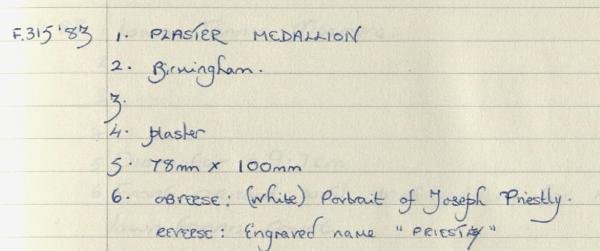 F.315'83 1. PLASTER MEDALLION
2. Birmingham.
3.
4. plaster
5. 78mm x 100mm
6. OBREESE: (White) Portrait of Joseph Priestly.
REVERSE: Engraved name "PRIESTLY"